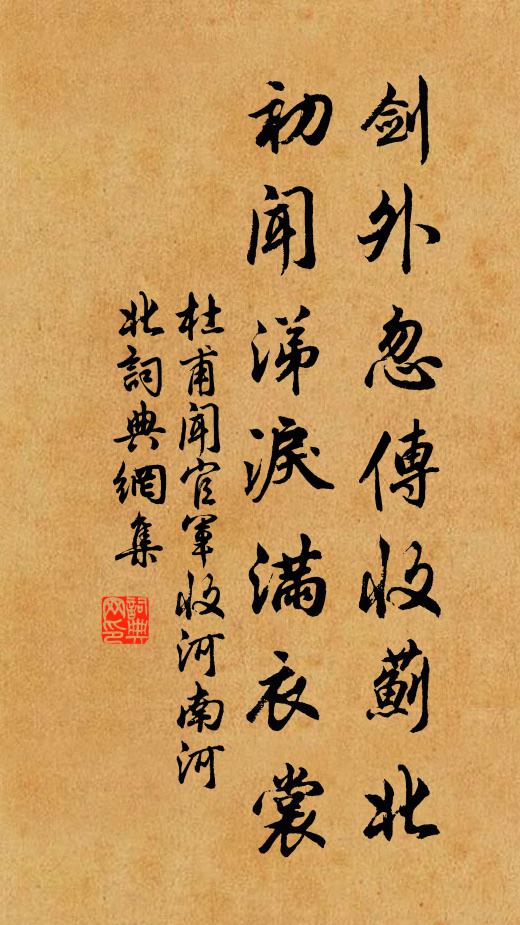 剑外忽傳收薊北
初闻涕淚滿衣裳
杜甫闻官軍收河南河
北詞典網集
詞典
网印